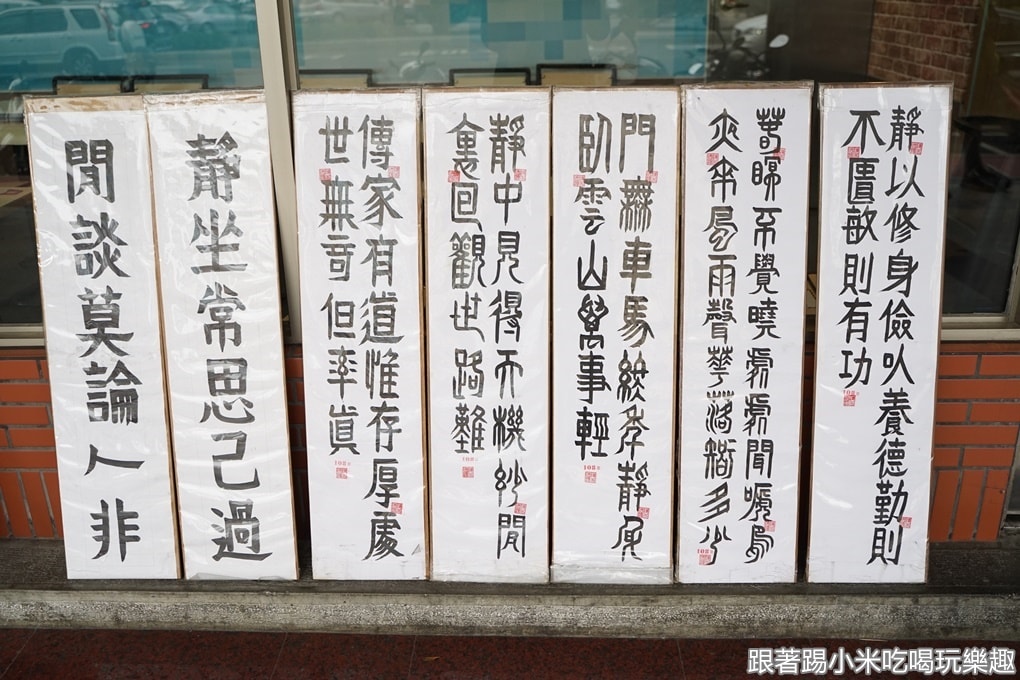 靜以修身儉以養德勤則
不匱敏則有功
春眠不覺曉處處聞嗁鳥
夜來風雨聲華落知多少
門無車馬終年靜身
臥雲山萬事輕
靜中見得天機妙閒
裏回觀世路難
傳家有道惟存厚處
世無奇但率真
靜坐常思己過
閒談莫論人非
跟著踢小米吃喝玩樂趣